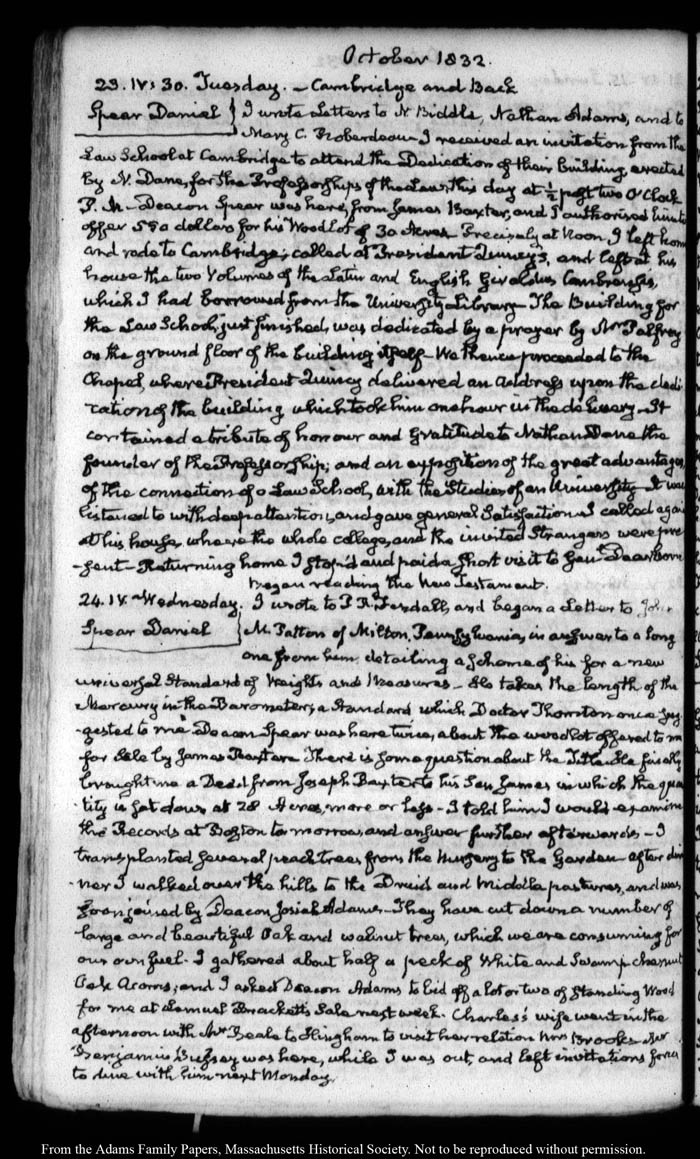 October 1832.
23. IV: 30. Tuesday. — Cambridge and Back
Spear Daniel } I wrote Letters to N Biddle, Nathan Adams, and to
Mary C. Roberdeau — I received an invitation from the
Law School at Cambridge to attend the Dedication of their building, erected
by N. Dane, for the Professorships of the Law, this day at ½ past two O'Clock
P. M — Deacon Spear was here, from James Baxter, and I authorised him to
offer 550 dollars for his Woodlot of 30 Acres. Precisely at Noon I left home
and rode to Cambridge; called at President Quincy's, and left at his
house the two Volumes of the Latin and English Giraldus Cambrensis,
which I had borrowed from the University Library — The Building for
the Law School, just finished, was dedicated by a prayer by Mr Palfrey
on the ground floor of the building itself — We thence proceeded to the
Chapel, where President Quincy delivered an Address upon the dedi
cation of the building which took him one hour in the delivery — It
contained a tribute of honour and gratitude to Nathan Dane the
founder of the Professorship; and an exposition of the great advantages
of the connection of a Law School, with the Studies of an University — It was
listened to with deep attention, and gave general Satisfaction — I called again
at his house, where the whole college, and the invited Strangers were pre
-sent — Returning home I stop'd and paid a short visit to Genl Dearborn
Began reading the New Testament.
24. IV. Wednesday. I wrote to and began a Letter to John
Spear Daniel } M. Patton of Milton, Pennsylvania, in answer to a long
one from him, detailing a scheme of his for a new
universal Standard of Weights and Measures — He takes the length of the
Mercury in the Barometer; a Standard which Doctor Thornton once sug
-gested to me Deacon Spear was here twice, about the woodlot offered to m
for Sale by James Baxter. There is some question about the Title. He finally
brought me a Deed from Joseph Baxter to his Son James in which the quan
tity is set down at 28 Acres, more or less — I told him I would examine
the Records at Boston to-morrow, and answer further afterwards — I
transplanted several peach trees, from the Nursery to the Garden — after din
-ner I walked over the hills to the Druid and Middle pastures, and was
soon joined by Deacon Josiah Adams — They have cut down a number of
large and beautiful Oak and walnut trees, which we are consuming for
our own fuel. I gathered about half a peck of White and Swamp chesnut
Oak Acorns; and I asked Deacon Adams to bid off a lot or two of standing Wood
for me at Lemuel Brackett's Sale next week. Charles's wife went in the
afternoon with Mrs Beale to Hingham to visit her relation Mrs Brooks.
Benjamin was here, while I was out, and left invitations for
to dine with him next Monday.
From the Adams Family Papers, Massachusetts Historical Society. Not to be reproduced without permission.